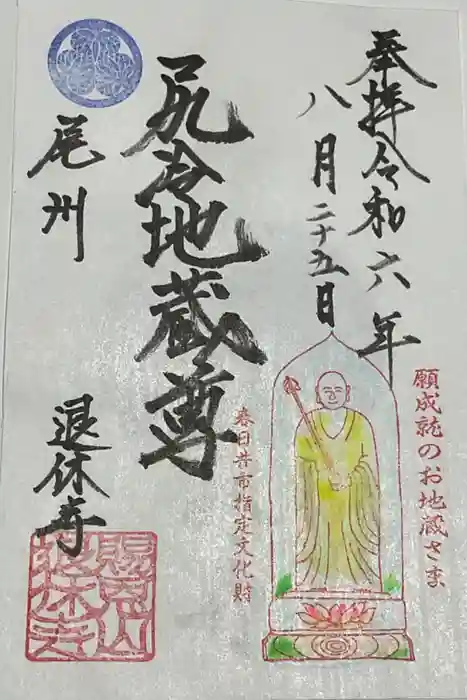 奉拝令和六年
八月二十五日
願成就のお地蔵さま
尻冷地蔵尊
春日井市指定文化財
尾州
退休寺